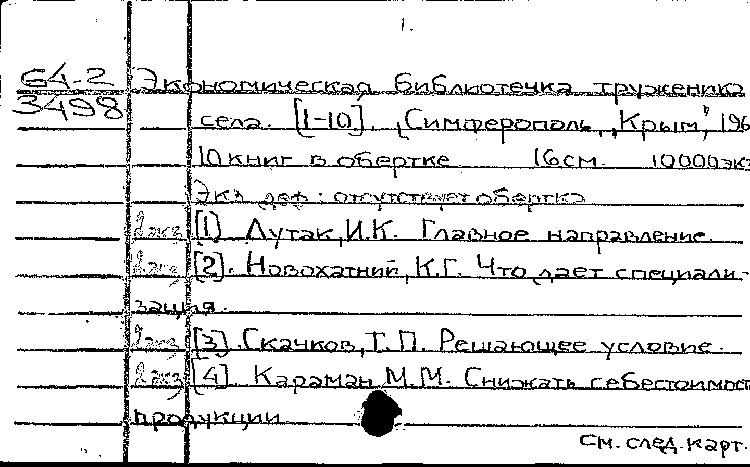 1.
64-2 Экономическая библиотечка труженика
3498 села. [1-10]. Симферополь, "Крым", 196
10 книг в обертке 16см. 10000экз
Экз. деф: отсутствует обертка
2 экз [1]. Лутак, И.К. Главное направление.
2 экз [2]. Новохатний, К.Г. Что дает специали-
зация.
2 экз [3]. Скачков, Г.П. Решающее условие.
2 экз [4]. Караман, М.М. Снижать себестоимост
продукции
См. след. карт.